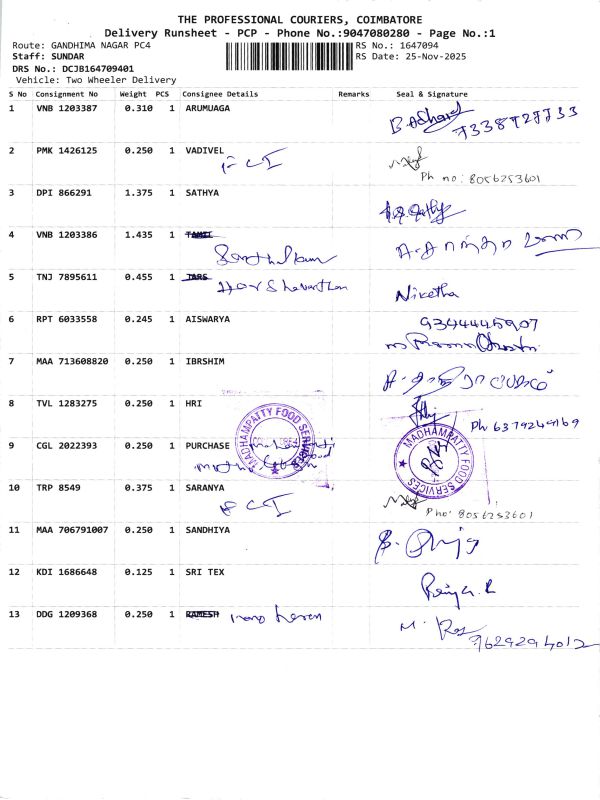 THE PROFESSIONAL COURIERS, COIMBATORE
Delivery Runsheet - PCP - Phone No.:9047080280 - Page No.:1
Route: GANDHIMA NAGAR PC4 RS No.: 1647094
Staff: SUNDAR RS Date: 25-Nov-2025
DRS No.: DCJB164709401
Vehicle: Two Wheeler Delivery
S No Consignment No Weight PCS Consignee Details Remarks Seal & Signature
1 VNB 1203387 0.310 1 ARUMUAGA
2 PMK 1426125 0.250 1 VADIVEL
FCI
Ph no: 8056253601
3 DPI 866291 1.375 1 SATHYA
4 VNB 1203386 1.435 1 TAMIL
5 TNJ 7895611 0.455 1 TARS
Niketha
6 RPT 6033558 0.245 1 AISWARYA
9344445907
7 MAA 713608820 0.250 1 IBRSHIM
8 TVL 1283275 0.250 1 HRI
Ph 6379249169
MADHAMPATTY FOOD SERVICES
MADHAMPATTY FOOD SERVICES
9 CGL 2022393 0.250 1 PURCHASE
10 TRP 8549 0.375 1 SARANYA
FCI
Pho: 8056253601
11 MAA 706791007 0.250 1 SANDHIYA
12 KDI 1686648 0.125 1 SRI TEX
13 DDG 1209368 0.250 1 RAMESH
M. Raj
7629294012